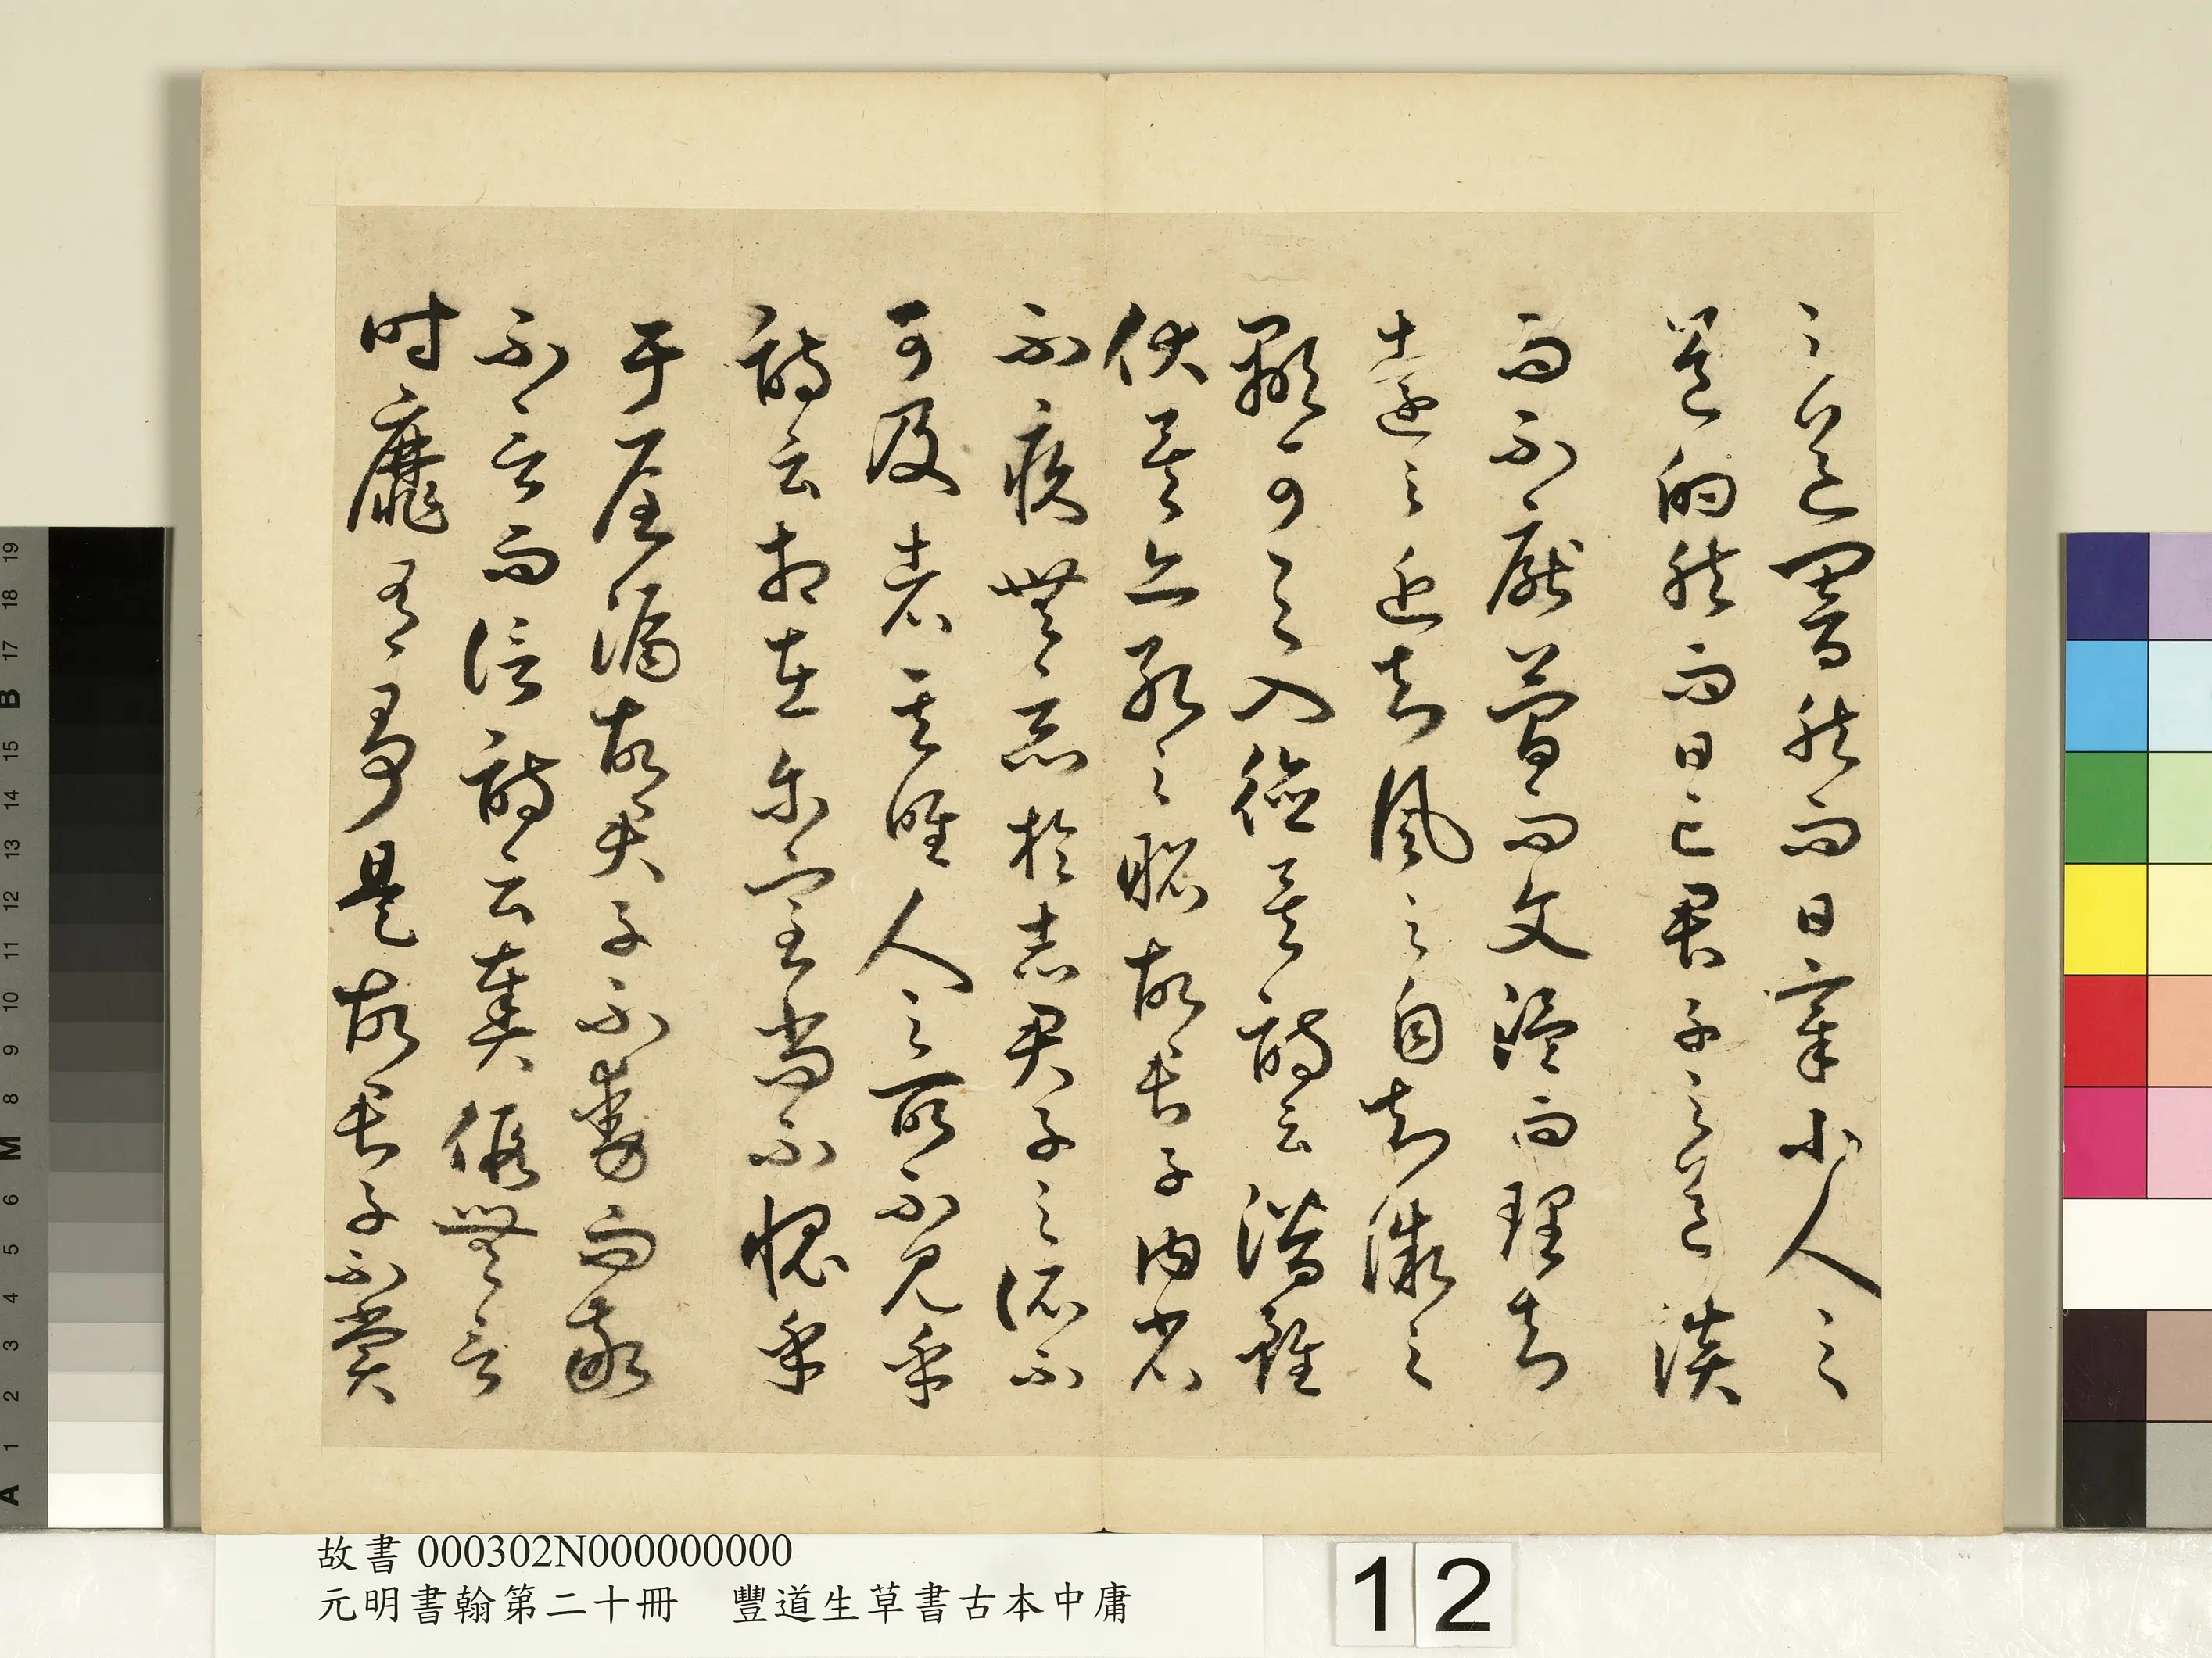 之道闇然而日章小人之
道的然而日亡君子之道淡
而不厭簡而文溫而理知
遠之近知風之自知微之
顯可與入德矣詩云潛雖
伏矣亦孔之昭故君子內省
不疚無惡於志君子之所不
可及者其唯人之所不見乎
詩云相在爾室尚不愧乎
于屋漏故君子不動而敬
不言而信詩云奏假無言
時靡有爭是故君子不賞
故書 000302N000000000
元明書翰第二十冊 豐道生草書古本中庸
12
19
18
17
B
16
15
14
13
12
11
10
9
8
M
7
6
5
4
3
2
1
A